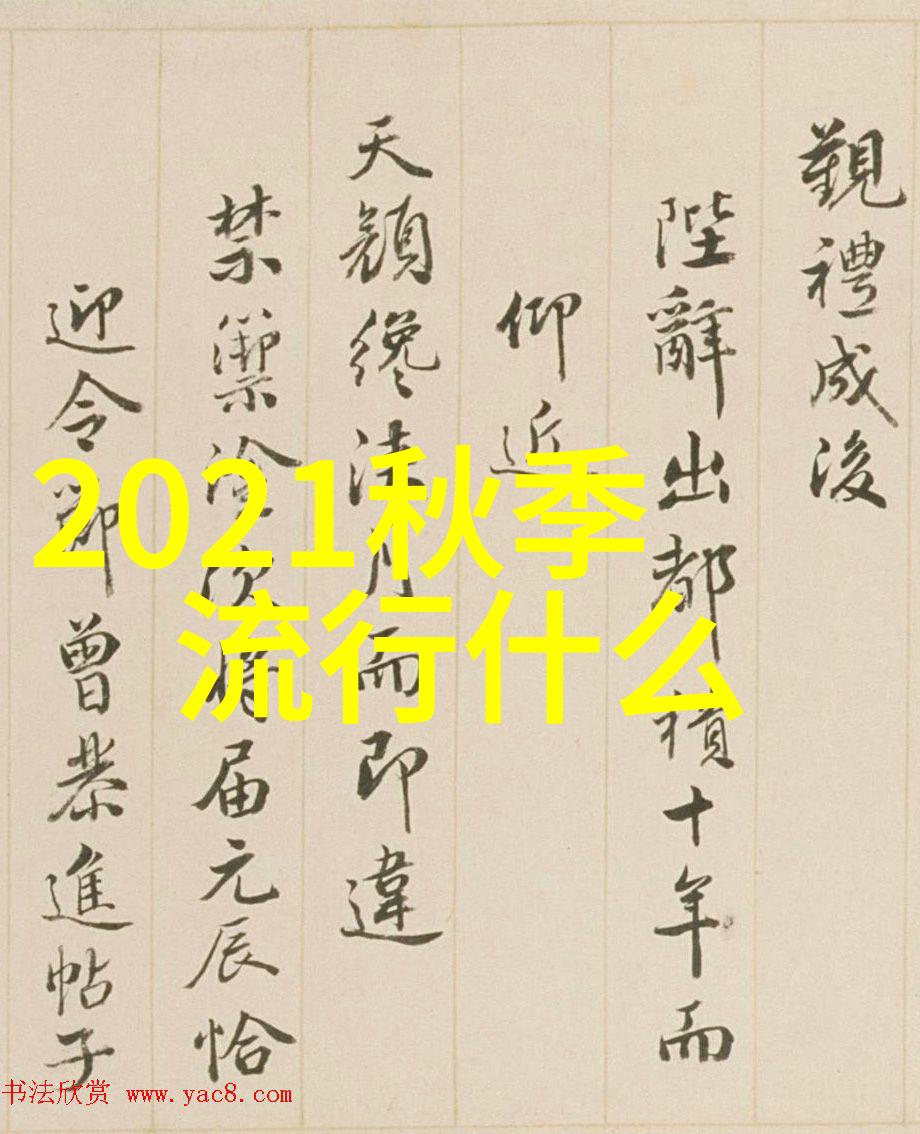 覲禮成後
陛辭出都積十年而
仰近
天顏纔月而即違
禁籞次將届元辰恰
迎令節曾恭進帖子
2021秋季
流行什么
书法欣赏 www.yac8.com